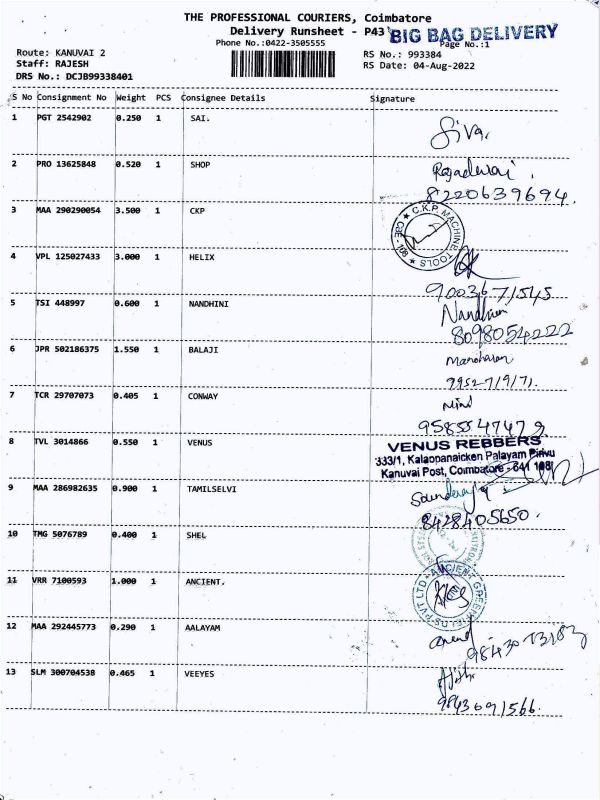 THE PROFESSIONAL COURIERS, Coimbatore
Delivery Runsheet - P43 BIG BAG DELIVERY
Phone No.:0422-3505555 Page No.:1
Route: KANUVAI 2 RS No.: 993384
Staff: RAJESH RS Date: 04-Aug-2022
DRS No.: DCJB99338401
S No Consignment No Weight PCS Consignee Details Signature
1 PGT 2542902 0.250 1 SAI. Siva.
2 PRO 13625848 0.520 1 SHOP
8220639694.
3 MAA 290290054 3.500 1 CKP C.K.P. MACHINE TOOLS CBE - 108
4 VPL 125027433 3.000 1 HELIX
9003671545
5 TSI 448997 0.600 1 NANDHINI Nandhini
8098054222
6 JPR 502186375 1.550 1 BALAJI Manoharan
7 TCR 29707073 0.405 1 CONWAY
8 TVL 3014866 0.550 1 VENUS VENUS REBBERS
333/1, Kalappanaicken Palayam Pirivu
Kanuvai Post, Coimbatore - 641 108
9 MAA 286982635 0.900 1 TAMILSELVI
8428405650.
10 TMG 5076789 0.400 1 SHEL
11 VRR 7100593 1.000 1 ANCIENT. ANCIENT GREENFIELDS PVT LTD
12 MAA 292445773 0.290 1 AALAYAM Anand
13 SLM 300704538 0.465 1 VEEYES
9843091566.